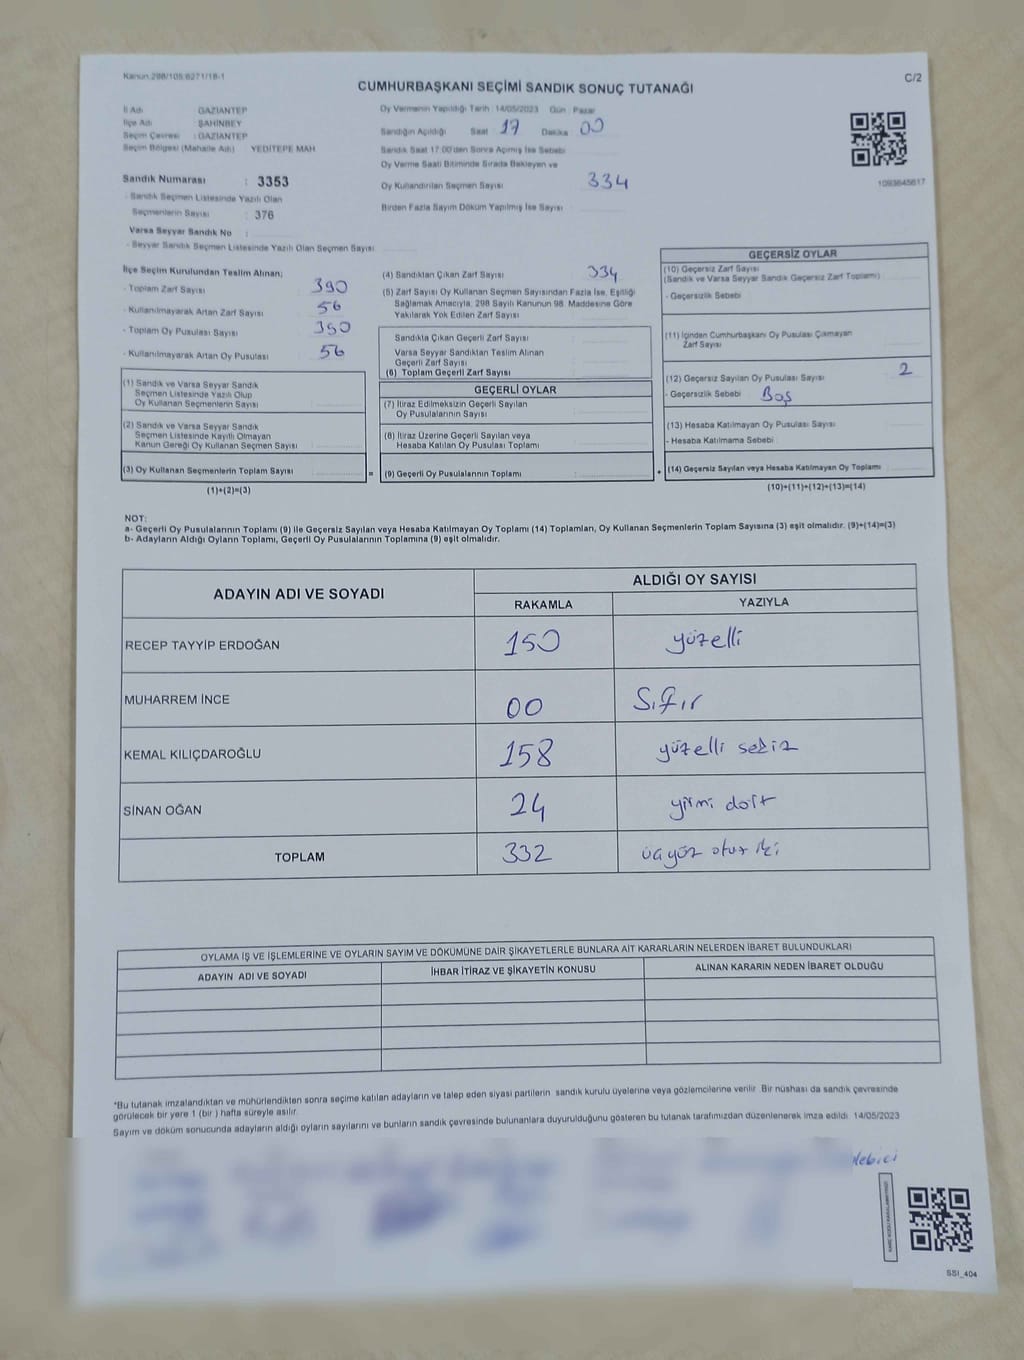 Kanun:298/105;6271/18-1
C/2
CUMHURBAŞKANI SEÇİMİ SANDIK SONUÇ TUTANAĞI
İl Adı GAZİANTEP
İlçe Adı ŞAHİNBEY
Seçim Çevresi : GAZİANTEP
Seçim Bölgesi (Mahalle Adı) YEDİTEPE MAH.
Sandık Numarası : 3353
- Sandık Seçmen Listesinde Yazılı Olan
Seçmenlerin Sayısı : 376
Varsa Seyyar Sandık No :
- Seyyar Sandık Seçmen Listesinde Yazılı Olan Seçmen Sayısı
Oy Vermenin Yapıldığı Tarih : 14/05/2023 Gün : Pazar
Sandığın Açıldığı Saat 17 Dakika 00
Sandık Saat 17:00'den Sonra Açmış İse Sebebi
Oy Verme Saati Bitiminde Sırada Bekleyen ve
Oy Kullandırılan Seçmen Sayısı 334
Birden Fazla Sayım Döküm Yapılmış İse Sayısı
1093645617
İlçe Seçim Kurulundan Teslim Alınan;
- Toplam Zarf Sayısı 390
- Kullanılmayarak Artan Zarf Sayısı 56
- Toplam Oy Pusulası Sayısı 390
- Kullanılmayarak Artan Oy Pusulası 56
(1) Sandık ve Varsa Seyyar Sandık
Seçmen Listesinde Yazılı Olup
Oy Kullanan Seçmenlerin Sayısı
(2) Sandık ve Varsa Seyyar Sandık
Seçmen Listesinde Kayıtlı Olmayan
Kanun Gereği Oy Kullanan Seçmen Sayısı
(3) Oy Kullanan Seçmenlerin Toplam Sayısı
(1)+(2)=(3)
(4) Sandıktan Çıkan Zarf Sayısı 334
(5) Zarf Sayısı Oy Kullanan Seçmen Sayısından Fazla İse, Eşitliği
Sağlamak Amacıyla, 298 Sayılı Kanunun 98. Maddesine Göre
Yakılarak Yok Edilen Zarf Sayısı
Sandıkta Çıkan Geçerli Zarf Sayısı
Varsa Seyyar Sandıktan Teslim Alınan
Geçerli Zarf Sayısı
(6) Toplam Geçerli Zarf Sayısı
GEÇERLİ OYLAR
(7) İtiraz Edilmeksizin Geçerli Sayılan
Oy Pusulalarının Sayısı
(8) İtiraz Üzerine Geçerli Sayılan veya
Hesaba Katılan Oy Pusulası Toplamı
= (9) Geçerli Oy Pusulalarının Toplamı +
GEÇERSİZ OYLAR
(10) Geçersiz Zarf Sayısı
(Sandık ve Varsa Seyyar Sandık Geçersiz Zarf Toplamı)
- Geçersizlik Sebebi
(11) İçinden Cumhurbaşkanı Oy Pusulası Çıkmayan
Zarf Sayısı
(12) Geçersiz Sayılan Oy Pusulası Sayısı 2
- Geçersizlik Sebebi Boş
(13) Hesaba Katılmayan Oy Pusulası Sayısı
- Hesaba Katılmama Sebebi
(14) Geçersiz Sayılan veya Hesaba Katılmayan Oy Toplamı
(10)+(11)+(12)+(13)=(14)
NOT:
a- Geçerli Oy Pusulalarının Toplamı (9) ile Geçersiz Sayılan veya Hesaba Katılmayan Oy Toplamı (14) Toplamları, Oy Kullanan Seçmenlerin Toplam Sayısına (3) eşit olmalıdır. (9)+(14)=(3)
b- Adayların Aldığı Oyların Toplamı, Geçerli Oy Pusulalarının Toplamına (9) eşit olmalıdır.
ADAYIN ADI VE SOYADI ALDIĞI OY SAYISI
RAKAMLA YAZIYLA
RECEP TAYYİP ERDOĞAN 150 yüzelli
MUHARREM İNCE 00 Sıfır
KEMAL KILIÇDAROĞLU 158 yüzelli sekiz
SİNAN OĞAN 24 yirmi dört
TOPLAM 332 üçyüz otuz iki
OYLAMA İŞ VE İŞLEMLERİNE VE OYLARIN SAYIM VE DÖKÜMÜNE DAİR ŞİKAYETLERLE BUNLARA AİT KARARLARIN NELERDEN İBARET BULUNDUKLARI
ADAYIN ADI VE SOYADI İHBAR İTİRAZ VE ŞİKAYETİN KONUSU ALINAN KARARIN NEDEN İBARET OLDUĞU
*Bu tutanak imzalandıktan ve mühürlendikten sonra seçime katılan adayların ve talep eden siyasi partilerin sandık kurulu üyelerine veya gözlemcilerine verilir. Bir nüshası da sandık çevresinde
görülecek bir yere 1 (bir ) hafta süreyle asılır.
Sayım ve döküm sonucunda adayların aldığı oyların sayılarını ve bunların sandık çevresinde bulunanlara duyurulduğunu gösteren bu tutanak tarafımızdan düzenlenerek imza edildi. 14/05/2023
SSI_404